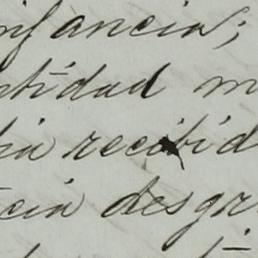 infancia;
ntidad m
bia recibid
cia desgr